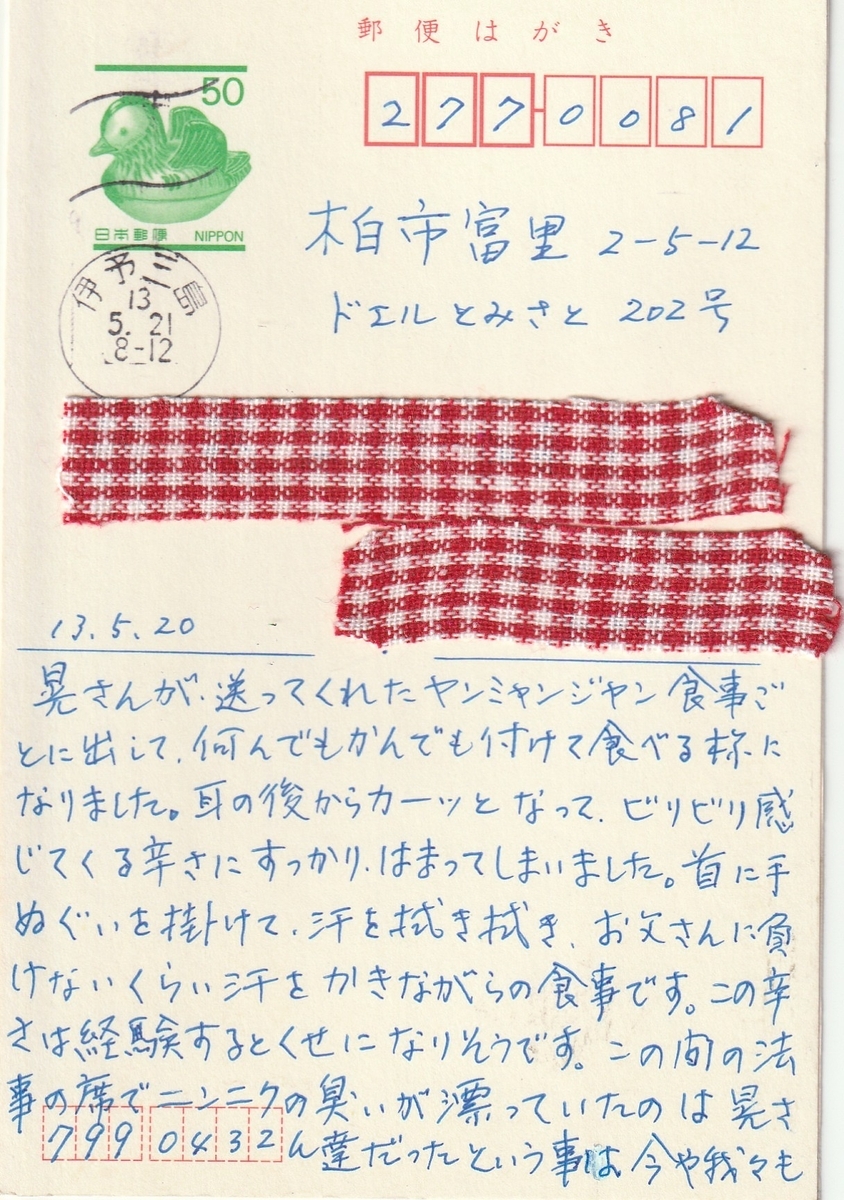 郵便はがき
50
日本郵便 NIPPON
277-0081
伊予三島
13
5.21
8-12
柏市富里 2-5-12
ドエルとみさと 202号
13.5.20
晃さんが、送ってくれたヤンミャンジャン食事ご
とに出して、何んでもかんでも付けて食べる様に
なりました。耳の後からカーッとなって、ビリビリ感
じてくる辛さにすっかり、はまってしまいました。首に手
ぬぐいを掛けて、汗を拭き拭き、お父さんに負
けないくらい汗をかきながらの食事です。この辛
さは経験するとくせになりそうです。この間の法
事の席でニンニクの臭いが漂っていたのは晃さ
ん達だったという事は、今や我々も
799 0432